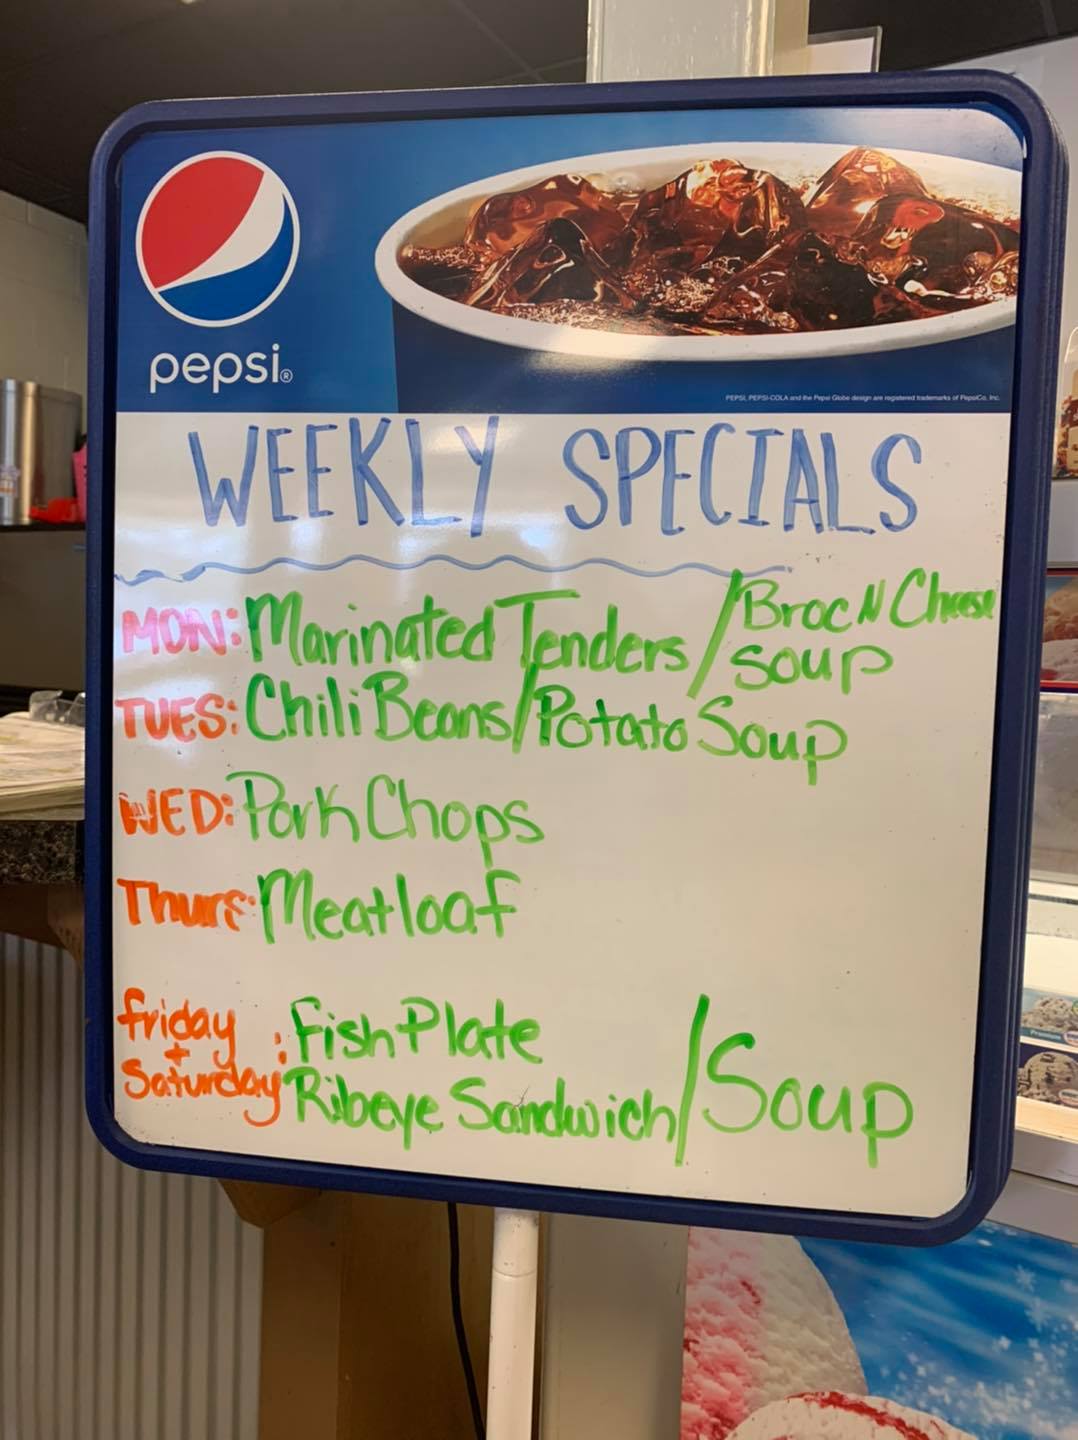 pepsi®
PEPSI, PEPSI-COLA and the Pepsi Globe design are registered trademarks of PepsiCo, Inc.
WEEKLY SPECIALS
MON: Marinated Tenders / Broc N Cheese
soup
TUES: Chili Beans / Potato Soup
WED: Pork Chops
Thurs: Meatloaf
friday
+
Saturday
: Fish Plate
Ribeye Sandwich / Soup